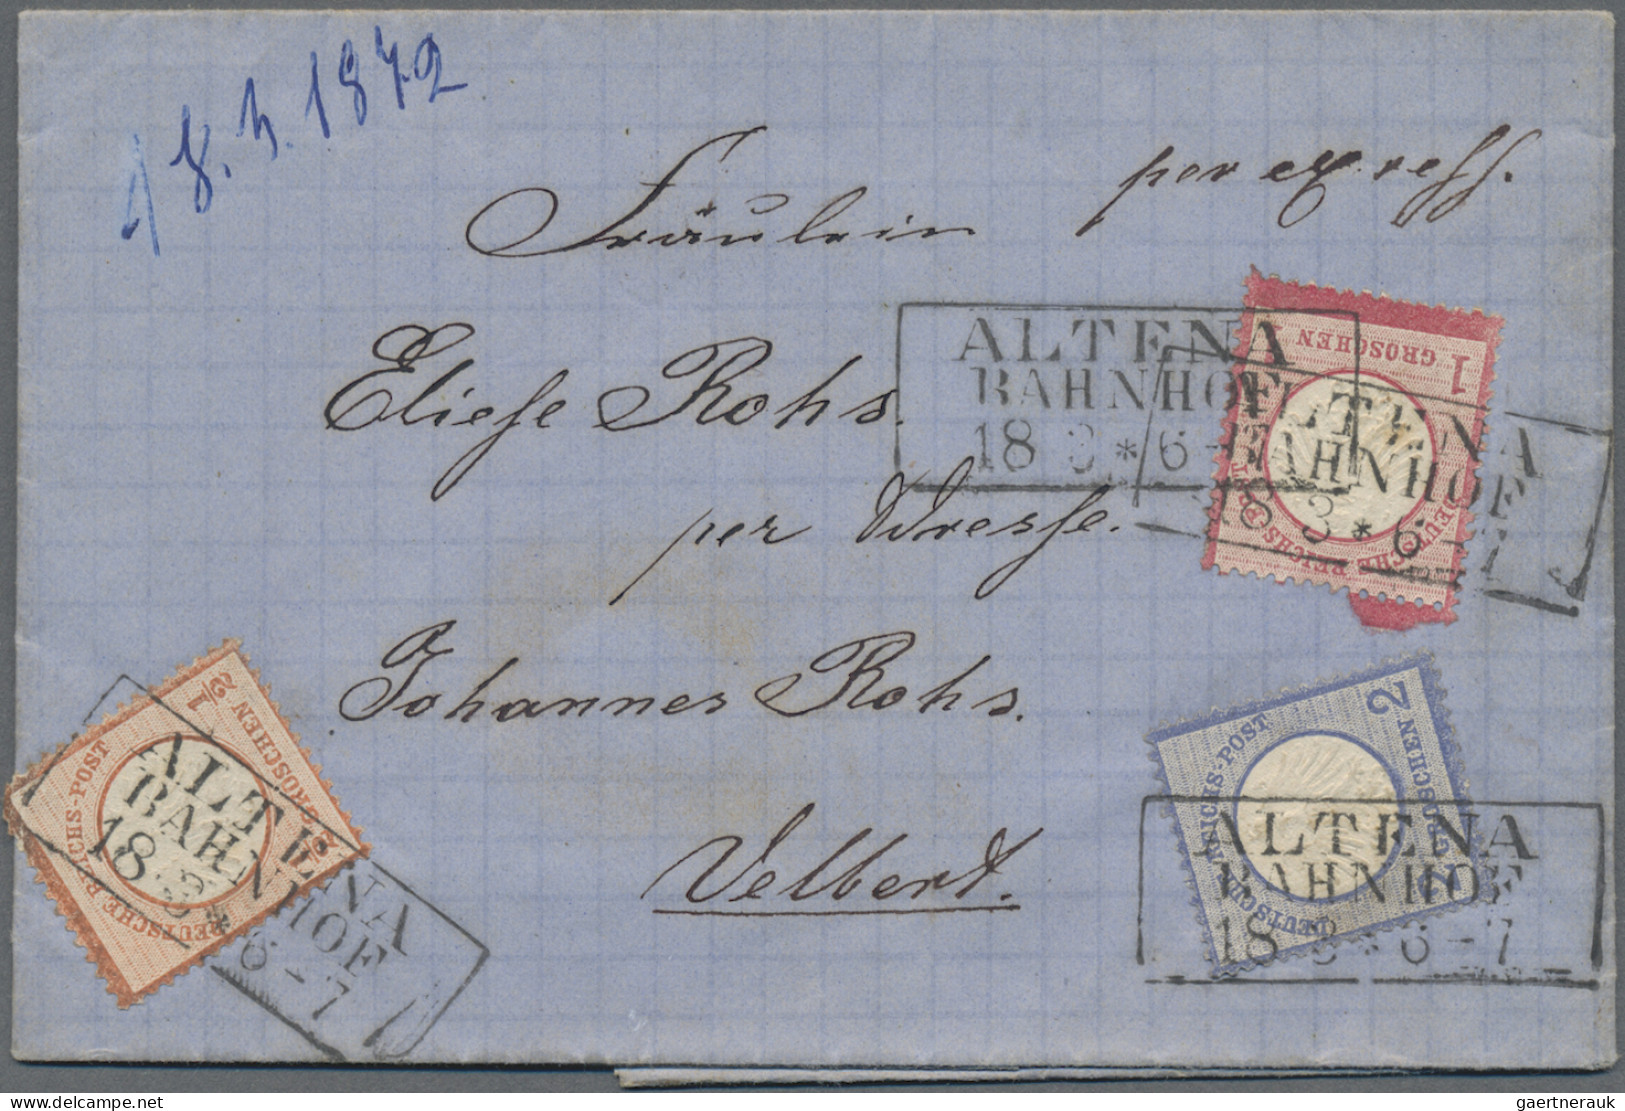 18. 3. 1872
per expreß.
Fräulein
Eliese Rohs.
per Adresse.
Johannes Rohs.
Velbert.
ALTENA
BAHNHOF
18 3 * 6-7
1
GROSCHEN
DEUTSCHE REICHS-POST
ALTENA
BAHNHOF
18 3 * 6-7
2
2 GROSCHEN
DEUTSCHE REICHS-POST
ALTENA
BAHNHOF
18 3 * 6-7
1/2
1/2 GROSCHEN
DEUTSCHE REICHS-POST
ALTENA
BAHNHOF
18 3 * 6-7
gaertnerauk